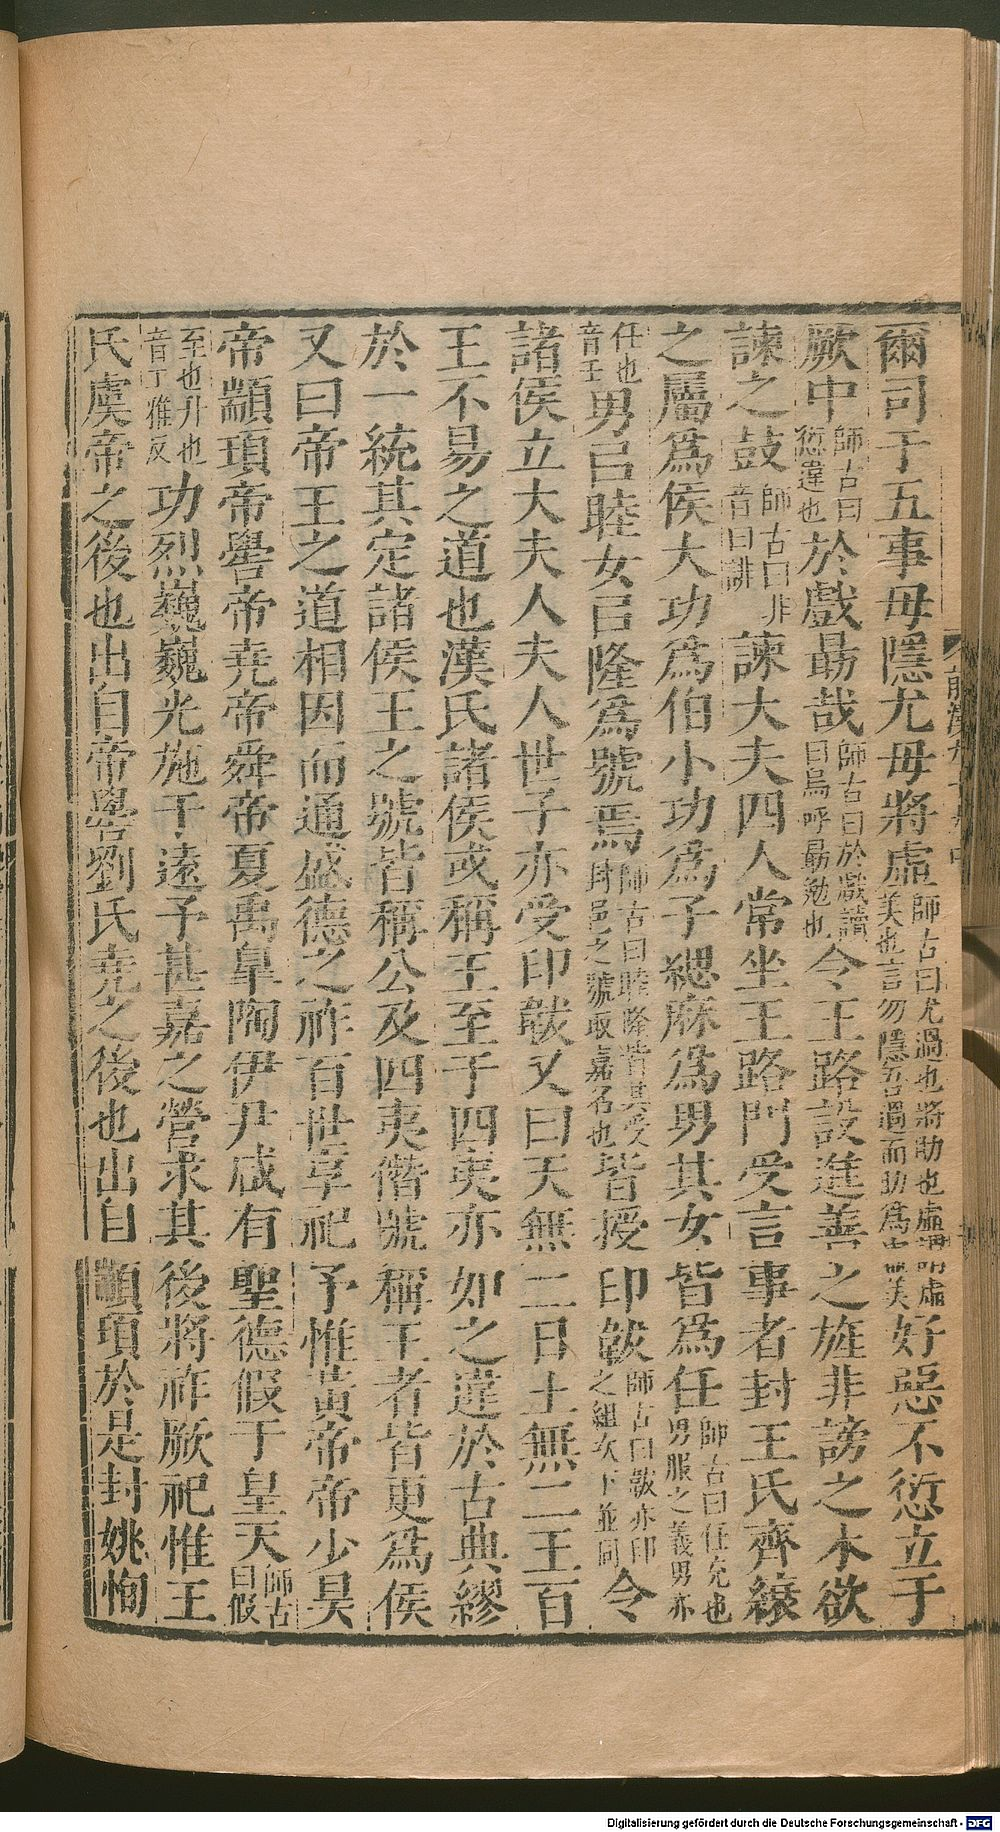 爾司于五事毋隱尤毋將虛師古曰尤過也將助也虛謂虛美也言勿隱吾過而助爲虛美好惡不愆立于
厥中師古曰愆違也於戲勗哉師古曰於戲讀曰烏呼勗勉也令王路設進善之旌非謗之木欲
諫之鼓師古曰非音曰誹諫大夫四人常坐王路門受言事者封王氏齊縗
之屬爲侯大功爲伯小功爲子緦麻爲男其女皆爲任師古曰任充也男服之義男亦
任也音壬男㠯睦女㠯隆爲號焉師古曰睦隆皆其受封邑之號取嘉名也皆授印韍師古曰韍亦印之組次下並同令
諸侯立大夫人夫人世子亦受印韍又曰天無二日土無二王百
王不易之道也漢氏諸侯或稱王至于四夷亦如之違於古典繆
於一統其定諸侯王之號皆稱公及四夷僭號稱王者皆更爲侯
又曰帝王之道相因而通盛德之祚百世享祀予惟黃帝帝少昊
帝顓頊帝嚳帝堯帝舜帝夏禹皐陶伊尹咸有聖德假于皇天師古曰假
至也升也音工雅反功烈巍巍光施于遠予甚嘉之營求其後將祚厥祀惟王
氏虞帝之後也出自帝嚳劉氏堯之後也出自顓頊於是封姚恂
前漢九十九中
Digitalisierung gefördert durch die Deutsche Forschungsgemeinschaft - DFG